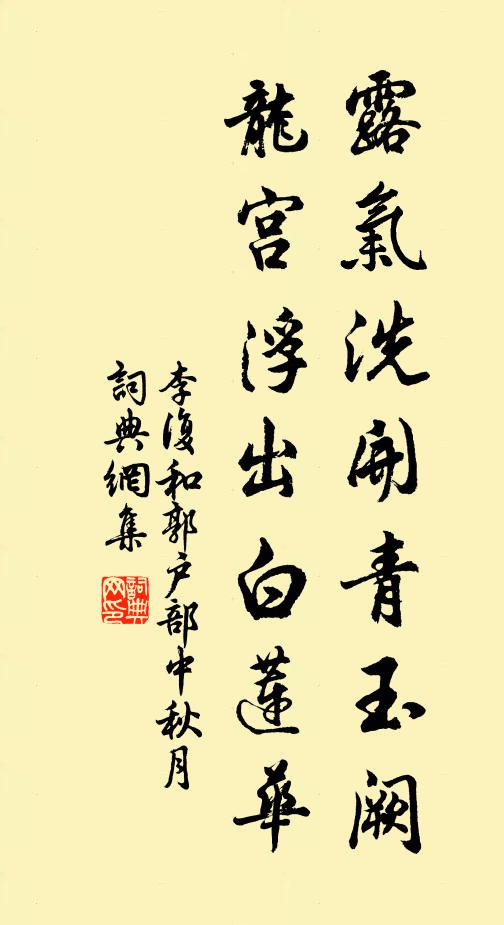 露氣洗開青玉闕
龍宮浮出白蓮華
李復和郭戶部中秋月
詞典網集
詞典網印